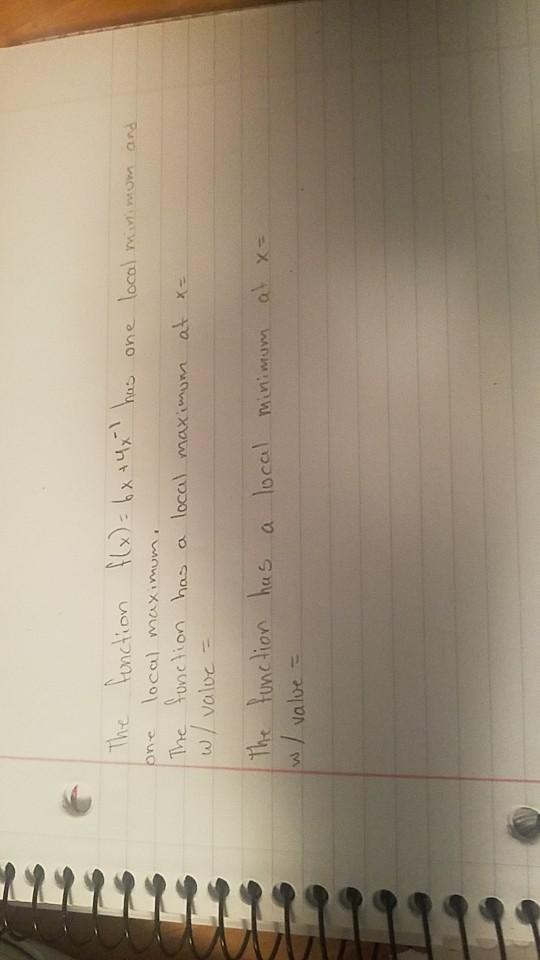 The function f(x) = 6x + 4x⁻¹ has one local minimum and
one local maximum.
The function has a local maximum at x =
w/ value =
The function has a local minimum at x =
w/ value =